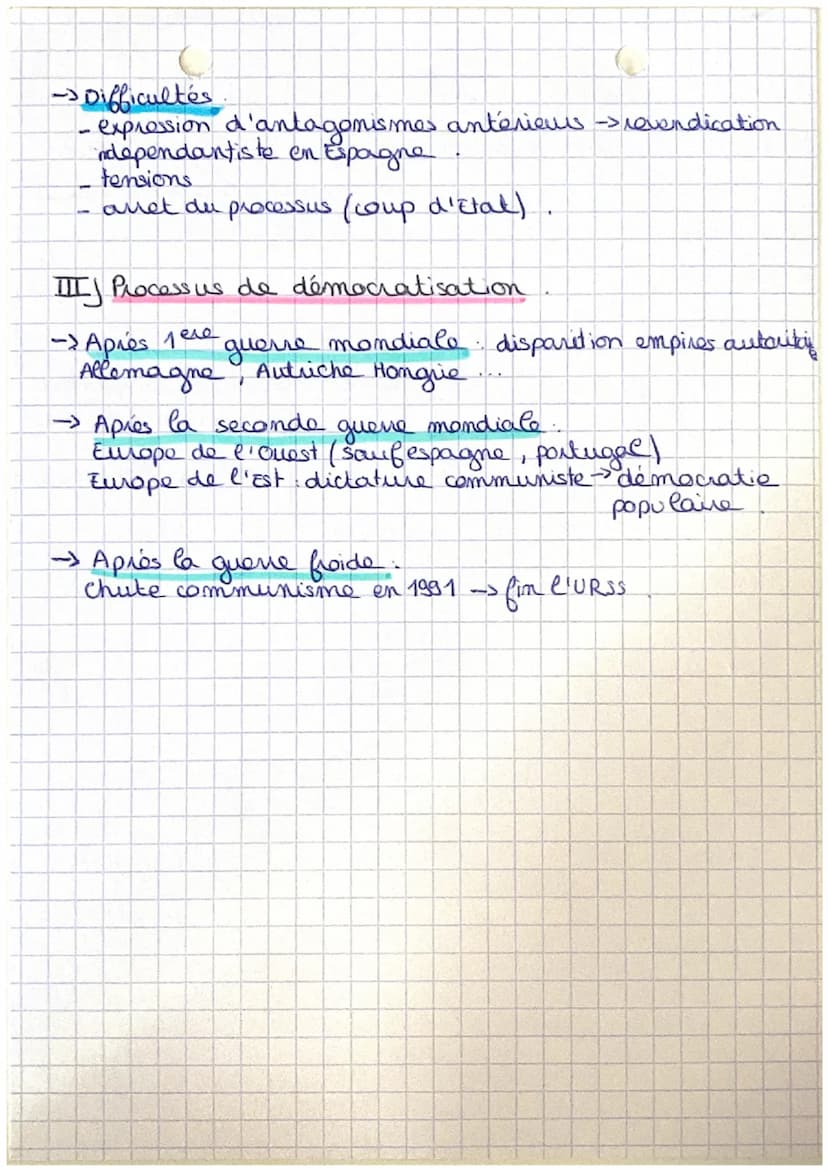 → Difficultés.
- expression d'antagonismes antérieurs → revendication
indépendantiste en Espagne.
- tensions
- arret du processus (coup d'Etat).
III) Processus de démocratisation.
→ Après 1ere guerre mondiale : disparition empires autoritaire
Allemagne, Autriche Hongrie ...
→ Après la seconde guerre mondiale.
Europe de l'Ouest (sauf espagne, portugal)
Europe de l'Est : dictature communiste → démocratie
populaire.
→ Après la guerre froide :
Chute communisme en 1991 → fin l'URSS.